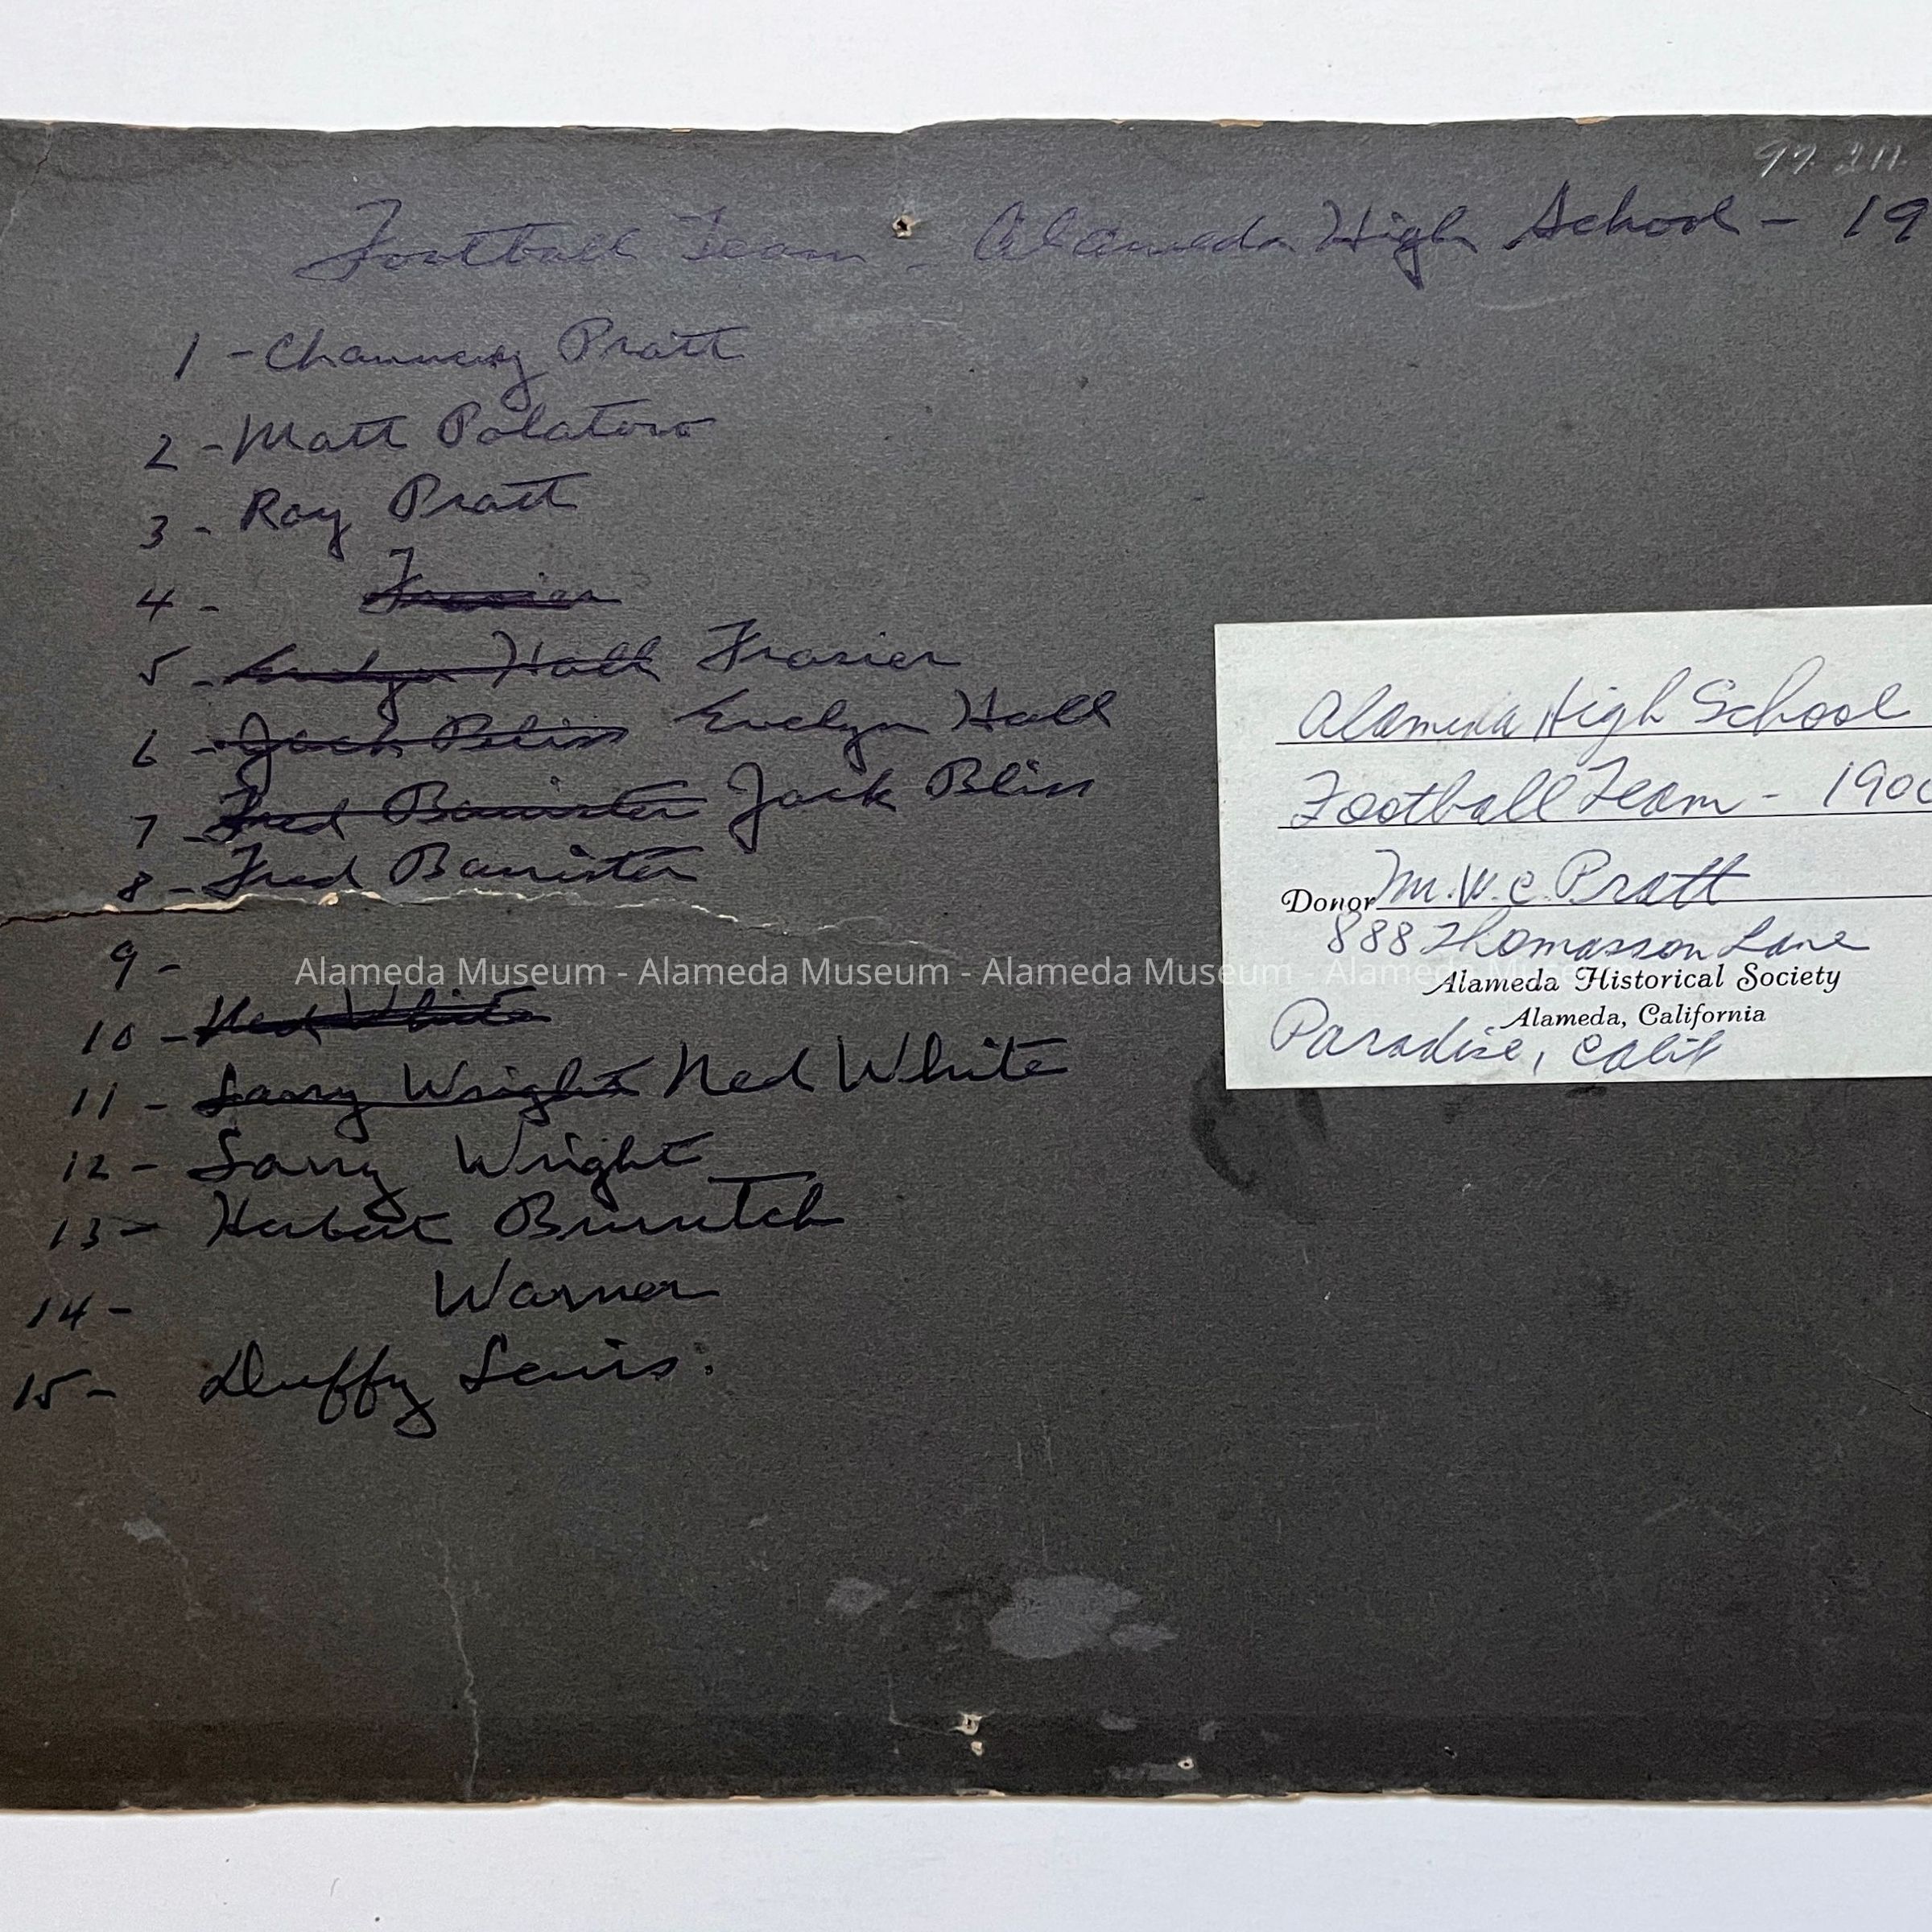 97.211
Football Team - Alameda High School - 19
1 - Chauncey Pratt
2 - Matt Polatovo
3 - Ray Pratt
4 - Frasier
5 - Evelyn Hall Frasier
6 - Jack Bliss Evelyn Hall
7 - Fred Banister Jack Bliss
8 - Fred Banister
9 -
10 - Ned White
11 - Larry Wright Ned White
12 - Larry Wright
13 - Herbert
14 - Warner
15 - Duffy Lewis.
Alameda High School
Football Team - 190
Donor M.W.C. Pratt
888 Thomasson Lane
Alameda Historical Society
Alameda, California
Paradise, Calif
Alameda Museum - Alameda Museum - Alameda Museum - Alameda Museum